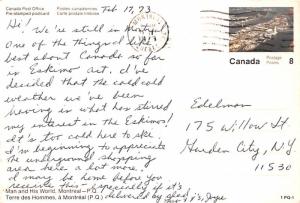 Canada Post Office
Pre-stamped postcard
Postes canadiennes
Carte postale timbrée
Feb 17, '73
Hi! We're still in Mont.
One of the things I like
best about Canada so far
is Eskimo art. I've
decided that the cold cold
weather we've been
having is what has stirred
my interest in the Eskimo!
It's too cold here to ski.
I'm beginning to appreciate
the underground shopping
area here a lot more. I
may be home before you
receive this - especially if it's
delivered by sled.
Canada
Postage
Postes
8
Edelman
175 Willow St
Garden City, NY
11530
Man and His World, Montreal – P.Q.
Terre des Hommes, à Montréal (P.Q.)
1 PQ-1